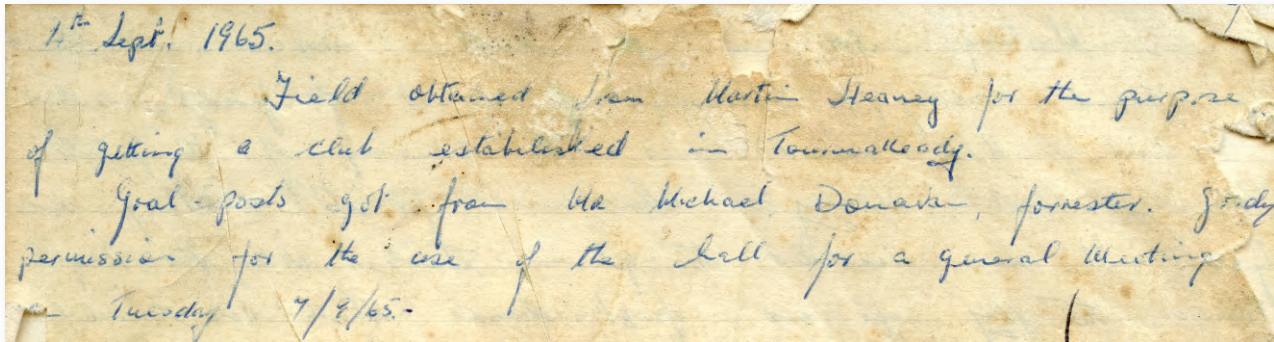 4th Sept. 1965.
Field obtained from Martin Heaney for the purpose
of getting a club established in Tourmakeady.
Goal-posts got from Mr Michael Donavan, forrester.
permission for the use of the hall for a general Meeting
on Tuesday 7/9/65.-